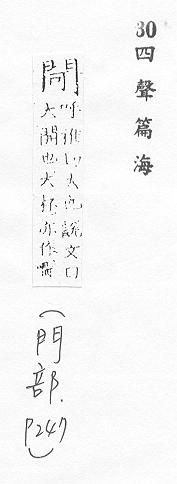 30四聲篇海
閜 呼雅切大說文曰
大開也大杯亦作
（門部. P247）